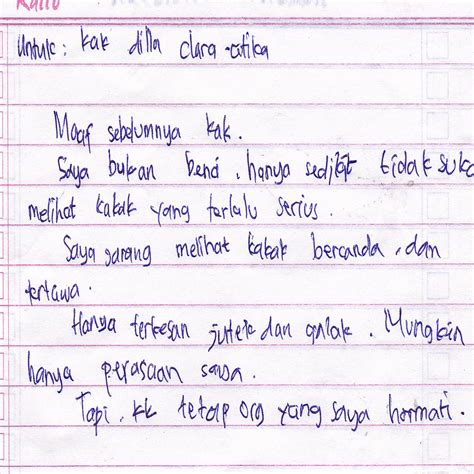 Untuk : kak dilla clara-atika
Maaf sebelumnya kak.
Saya bukan benci, hanya sedikit tidak suka
melihat kakak yang terlalu serius.
Saya jarang melihat kakak bercanda, dan
tertawa.
Hanya terkesan jutek dan galak. Mungkin
hanya perasaan saya.
Tapi, kk tetap org yang saya hormati.